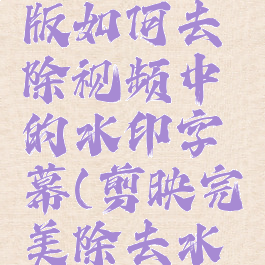 版如何去
除视频中
的水印字
幕(剪映完
美除去水